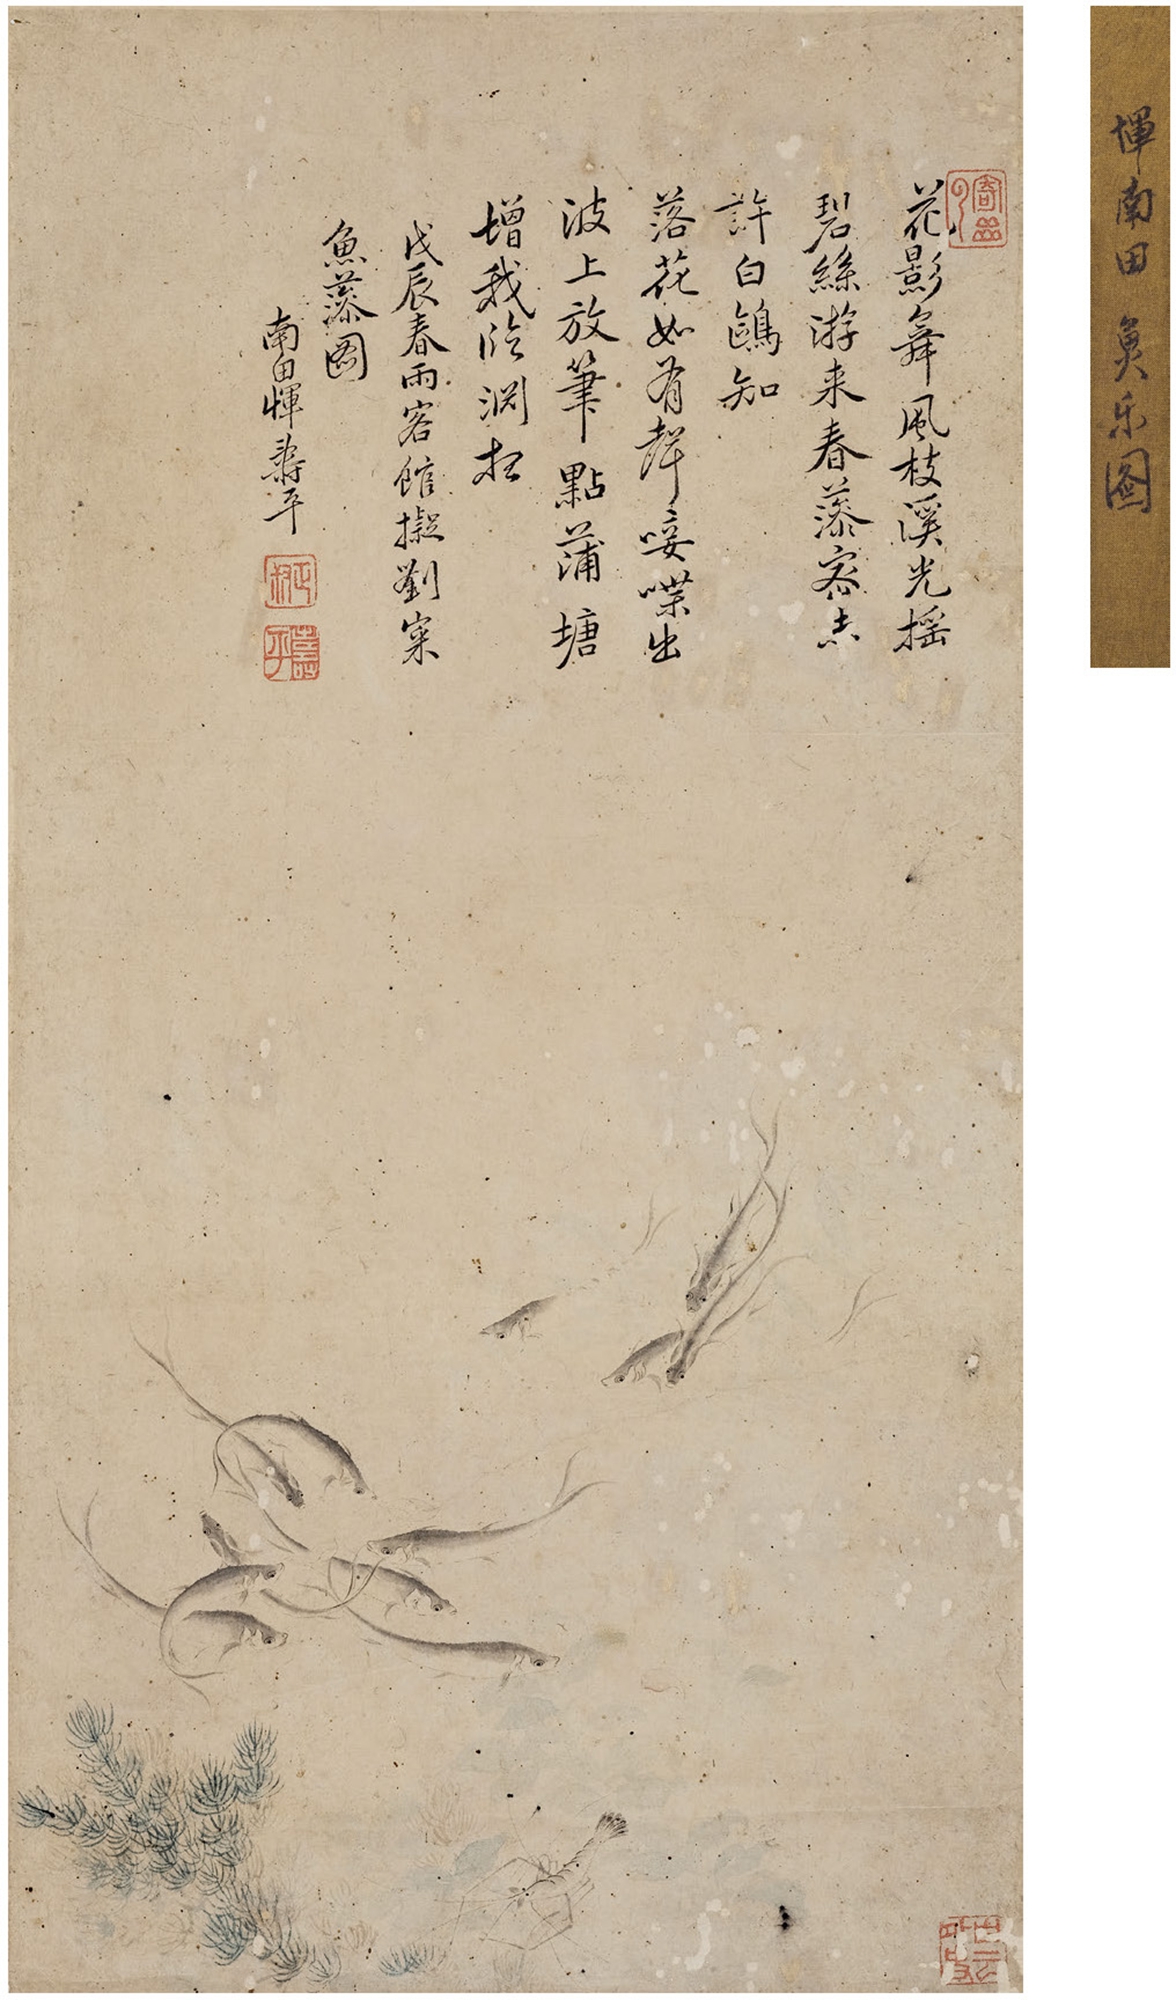 花影舞風枝溪光搖
碧絲游來春藻密去
許白鷗知
落花如有聲唼喋出
波上放筆點蒲塘
增我臨淵想
戊辰春雨客館擬劉寀
魚藻圖
南田惲壽平
壽平
惲南田 魚乐图